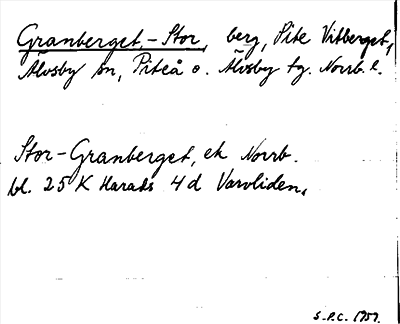 Granberget,-Stor, berg, Pite Vitberget,
Älvsby sn, Piteå o. Älvsby tg. Norrb. l.
Stor-Granberget, ek Norrb.
bl. 25 K Harads 4 d Varvliden,
S.P.C. 1957.